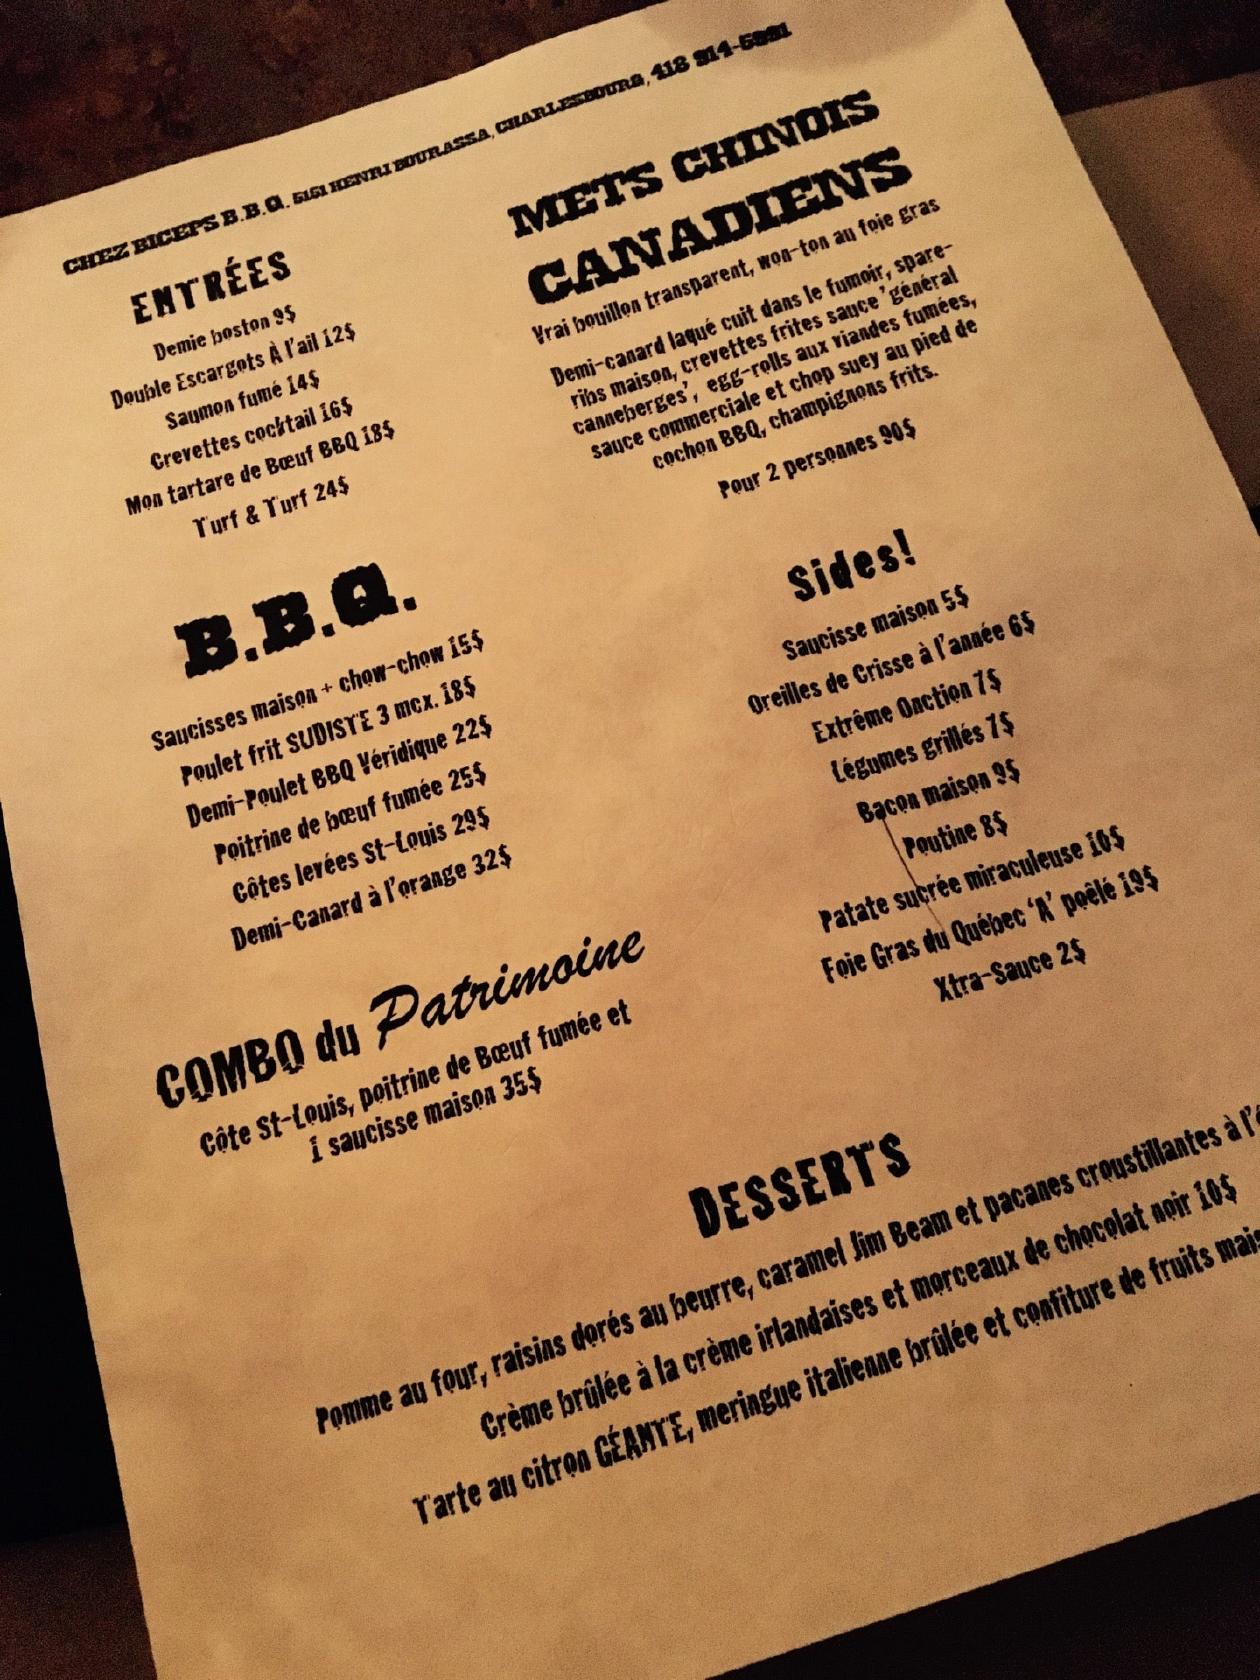 CHEZ BICEPS B.B.Q. 5151 HENRI BOURASSA, CHARLESBOURG, 418 914-
ENTRÉES
Demie boston 9$
Double Escargots À l'ail 12$
Saumon fumé 14$
Crevettes cocktail 16$
Mon tartare de Bœuf BBQ 18$
Turf & Turf 24$
B.B.Q.
Saucisses maison + chow-chow 15$
Poulet frit SUDISTE 3 mcx. 18$
Demi-Poulet BBQ Véridique 22$
Poitrine de bœuf fumée 25$
Côtes levées St-Louis 29$
Demi-Canard à l'orange 32$
COMBO du Patrimoine
Côte St-Louis, poitrine de Bœuf fumée et
1 saucisse maison 35$
METS CHINOIS
CANADIENS
Vrai bouillon transparent, won-ton au foie gras
Demi-canard laqué cuit dans le fumoir, spare-
ribs maison, crevettes frites sauce 'général
canneberges', egg-rolls aux viandes fumées,
sauce commerciale et chop suey au pied de
cochon BBQ, champignons frits.
Pour 2 personnes 90$
Sides!
Saucisse maison 5$
Oreilles de Crisse à l'année 6$
Extrême Onction 7$
Légumes grillés 7$
Bacon maison 9$
Poutine 8$
Patate sucrée miraculeuse 10$
Foie Gras du Québec 'A' poêlé 19$
Xtra-Sauce 2$
DESSERTS
Pomme au four, raisins dorés au beurre, caramel Jim Beam et pacanes croustillantes à
Crème brûlée à la crème irlandaises et morceaux de chocolat noir 10$
Tarte au citron GÉANTE, meringue italienne brûlée et confiture de fruits